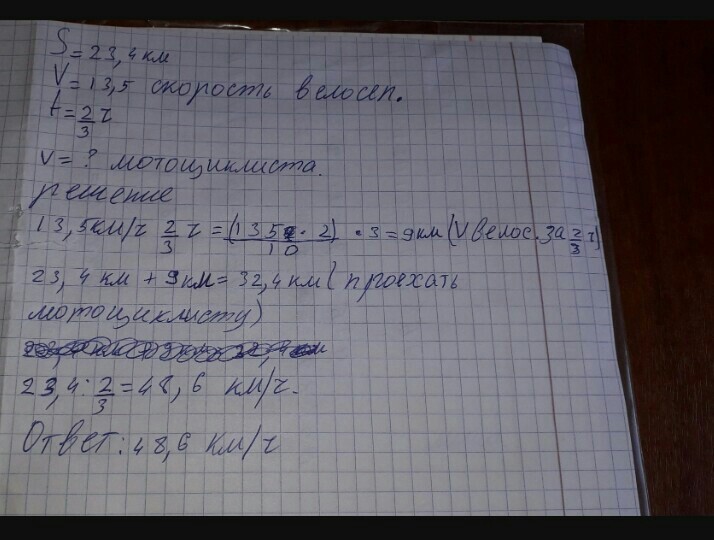 S = 23,4 км
V = 13,5 скорость велосеп.
t = 2/3 ч
v = ? мотоциклиста.
решение
13,5км/ч 2/3 ч = (135 · 2)/10 · 3 = 9км (V велос. за 2/3 ч)
23,4 км + 9км = 32,4 км ( проехать
мотоциклисту)
23,4 : 2/3 = 48,6 км/ч.
Ответ: 48,6 км/ч